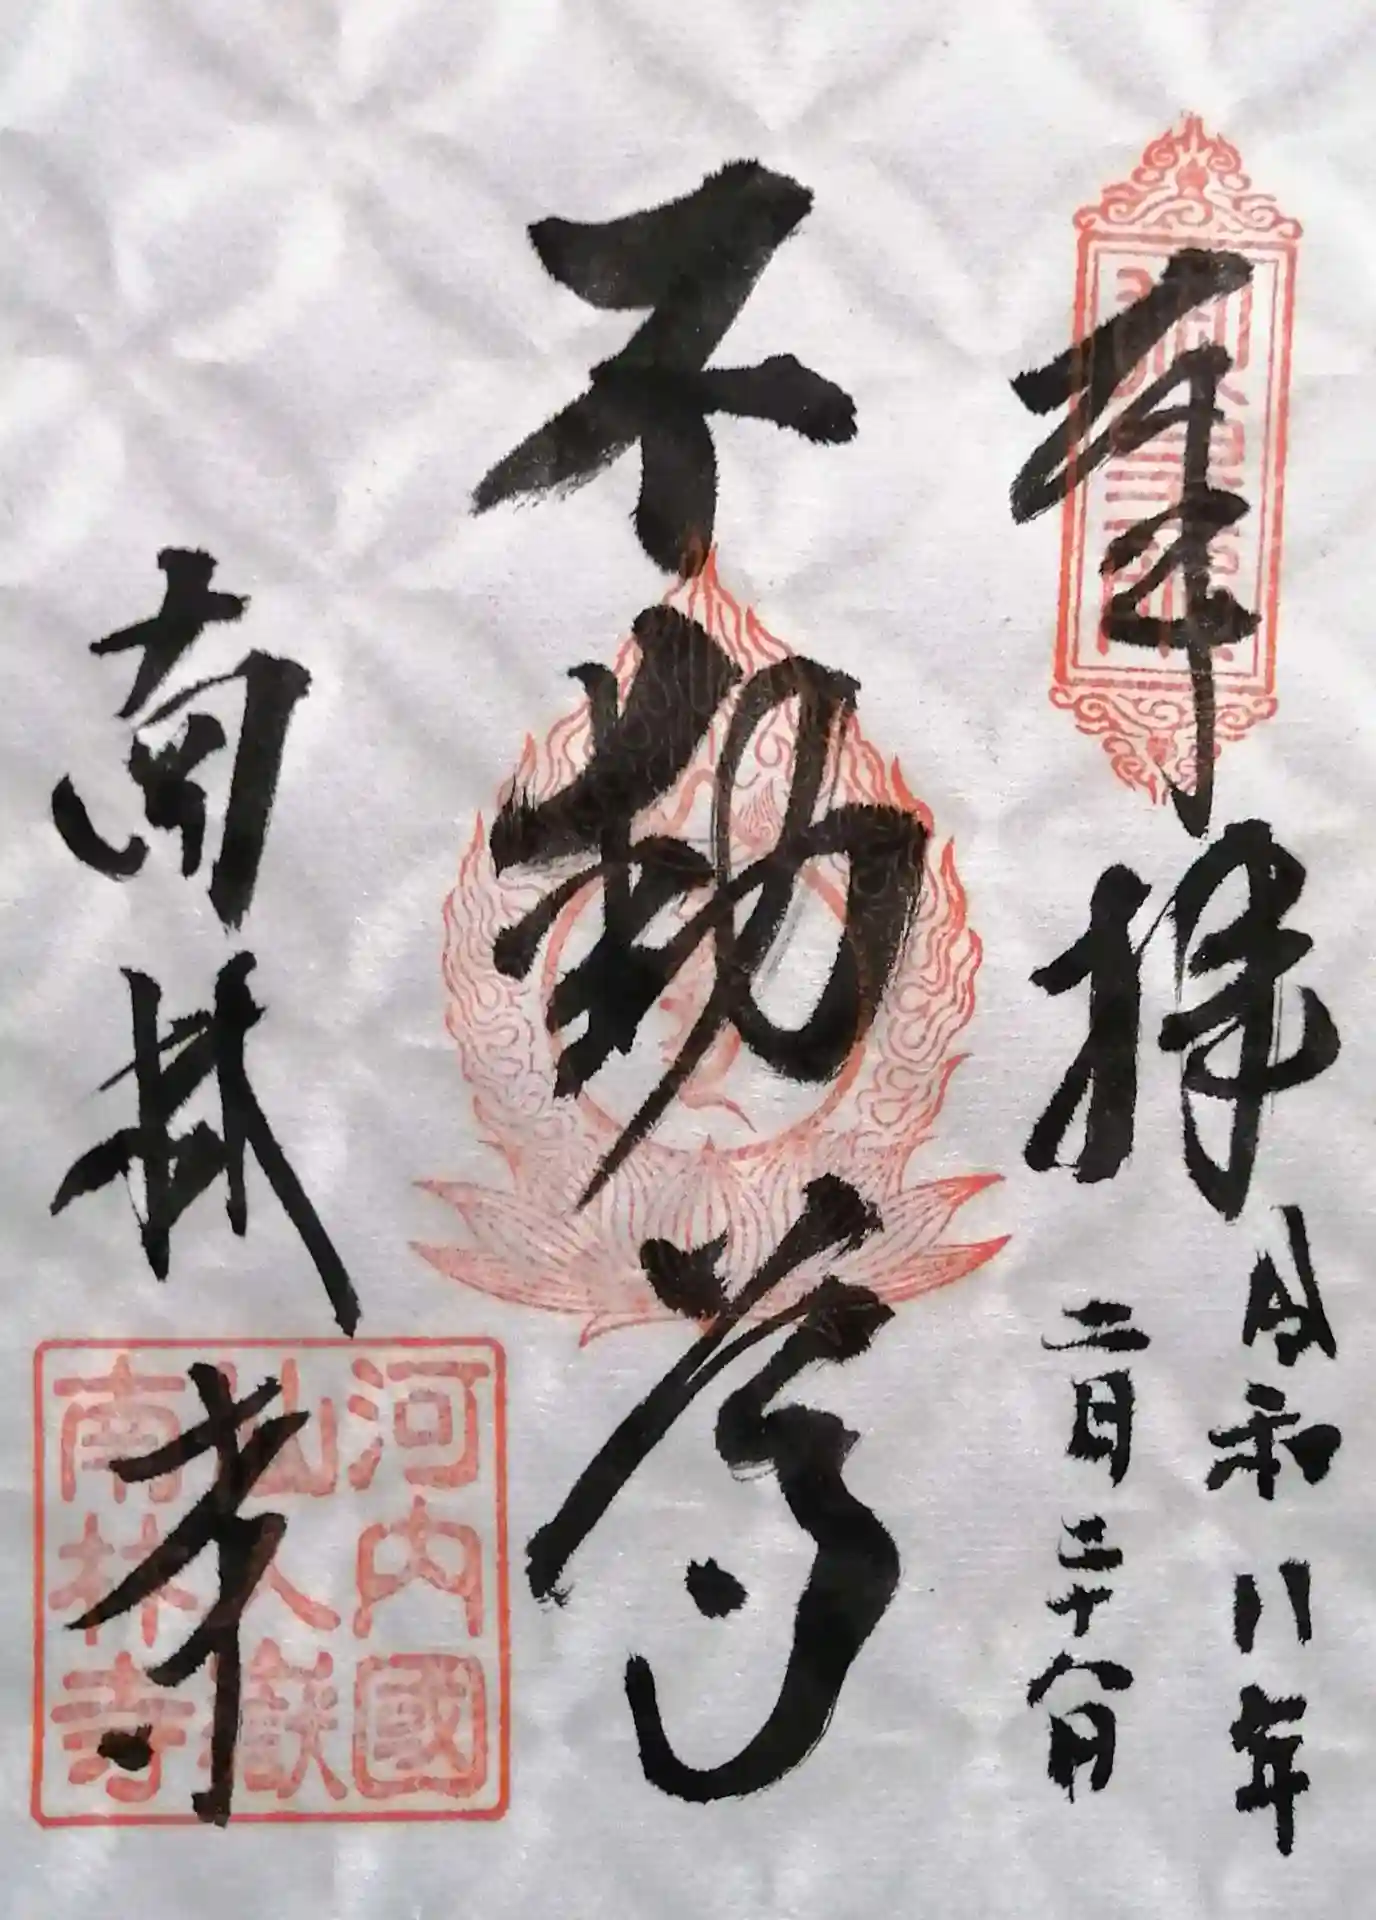 奉拝
令和八年
二月二十八日
不動尊
南林寺
河内國
仙人嶽
南林寺